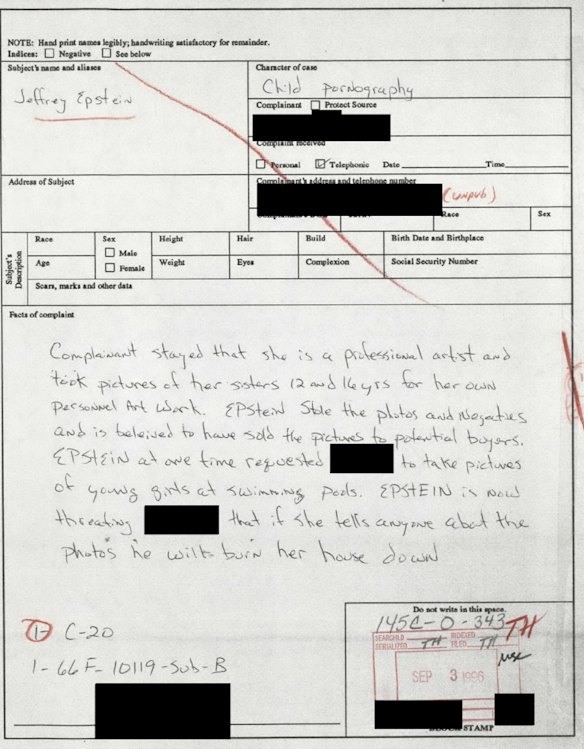 NOTE: Hand print names legibly; handwriting satisfactory for remainder.
Indices: ☐ Negative ☐ See below
Subject's name and aliases
Jeffrey Epstein
Character of case
Child pornography
Complainant ☐ Protect Source
Complaint received
☐ Personal ☑ Telephonic Date Time
Address of Subject
Complainant's address and telephone number
(unpub)
Race Sex
Subject's Description
Race Sex Height Hair Build Birth Date and Birthplace
☐ Male
Age ☐ Female Weight Eyes Complexion Social Security Number
Scars, marks and other data
Facts of complaint
Complainant stayed that she is a professional artist and
took pictures of her sisters 12 and 16 yrs for her own
personnel Art work. EPStein Stole the photos and Negatives
and is beleived to have sold the pictures to potential buyers.
EPSTEIN at one time requested to take pictures
of young girls at swimming pools. EPSTEIN is now
threating that if she tells anyone about the
photos he will burn her house down
1- C-20
1-66F-10119-Sub-B
Do not write in this space.
145C-0-343
TH
SEARCHED INDEXED
SERIALIZED TH FILED TH
SEP 3 1996
STAMP